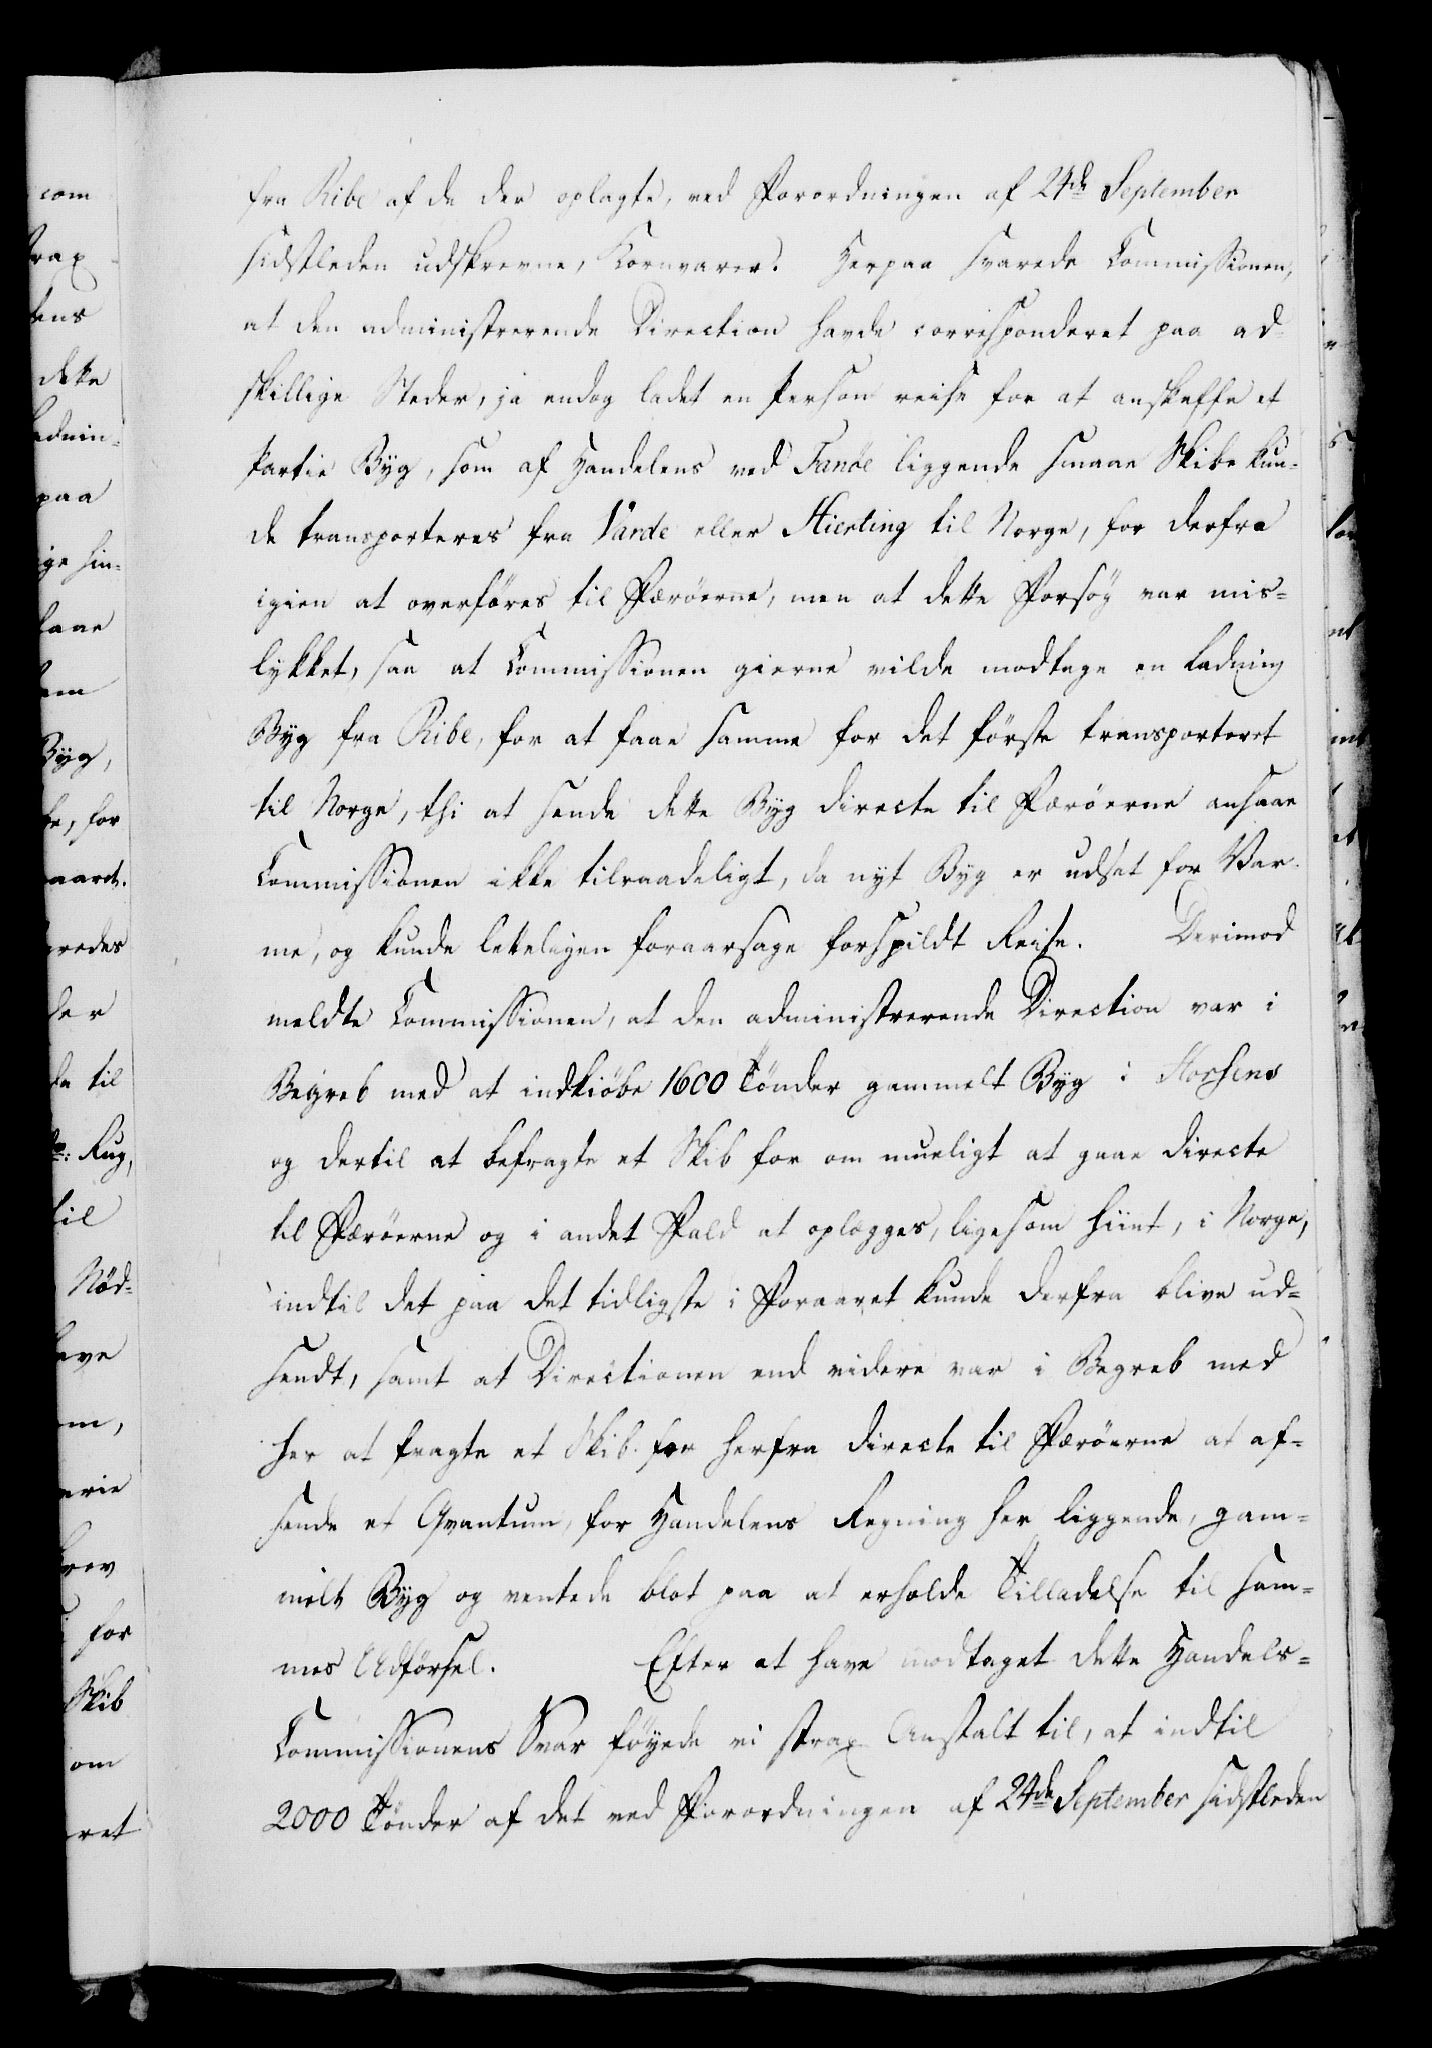 fra Ribe af de der oplagte, ved Forordningen af 24de September
sidstleden udskrevne, Kornvarer. Herpaa svarede Commissionen,
at den administrerende Direction havde correspondert paa ad
skillige Steder, ja endog ladet en Person reise for at anskaffe et
Partie Byg, som af Handelens ved Fanöe liggende smaae Skibe kun-
de transporteres fra Varde eller Hierting til Norge, for derfra
igien at overføres til Færöerne, men at dette Forsög var mis-
lykket, saa at Commissionen gierne vilde modtage en Ladning
Byg fra Ribe, for at faae samme for det förste transporteret
til Norge, thi at sende dette Byg directe til Færöerne ansaae
Commissionen ikke tilraadeligt, da nyt Byg er udsat for Var
me, og kunde letteligen foraarsage forspildt Reise. Derimod
meldte Commissionen, at den administrerende Direction var i
Begreb med at indkiöbe 1600 Tönder gammelt Byg i Horsens
og dertil at befragte et Skib for om mueligt at gaae directe
til Færöerne og i andet Fald at oplægges, ligesom hiint, i Norge,
indtil det paa det tidligste i Foraaret kunde derfra blive ud-
sendt, samt at Directionen end videre var i Begreb med
her at fragte et Skib for herfra directe til Færöerne at af-
sende et Qvantum, for Handelens Regning her liggende, gam-
melt Byg og ventede blot paa at erholde Tilladelse til sam-
mes Udförsel. Efter at have modtaget dette Handels-
Commissionens Svar föyede vi strax Anstalt til, at indtil
2000 Tönder af det ved Forordningen af 24de September sidstleden